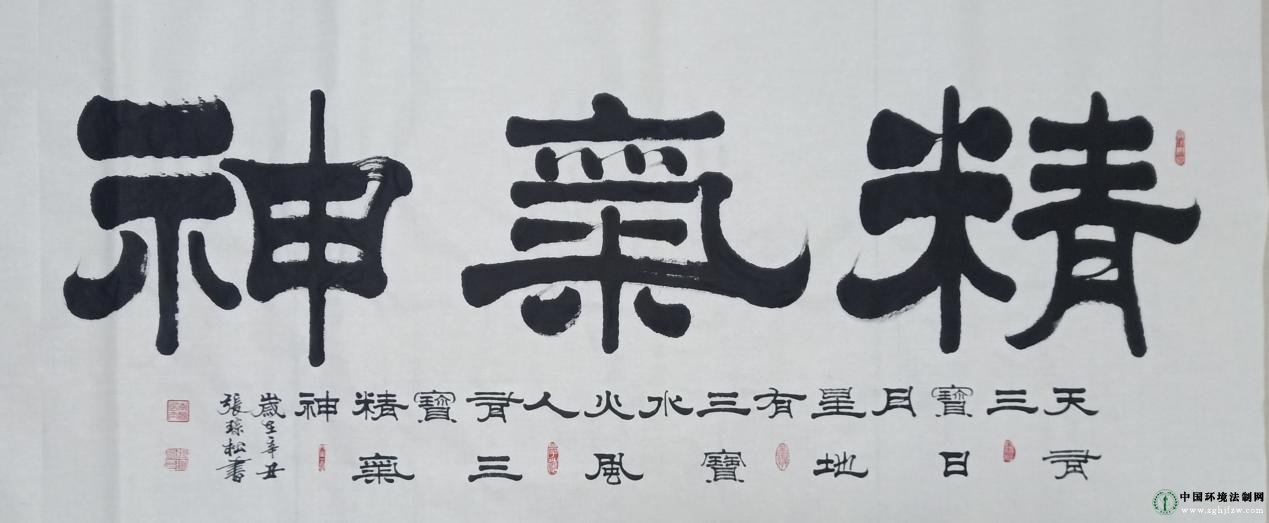 精氣神
天有三寶日月星地有三寶水火風人有三寶精氣神
歲在辛丑
張松書
中国环境法制网
www.zghjfzw.com